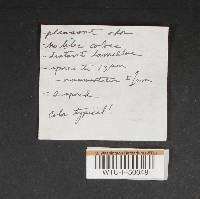 pleasant odor
no lilac colors
- distant lamellae
- spores to 13 µm
- ornamentation
- 2-spored
color typical!
WTU-F-50048